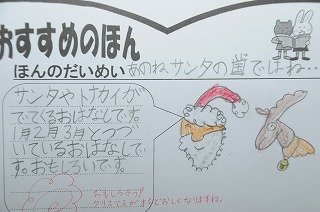 おすすめのほん
ほんのだいめい あのね、サンタの国ではね‥
サンタやトナカイが
でてくるおはなしです。
1月2月3月とつづ
いているおはなしで
す。おもしろいです。
おもしろそう!
クリスマスがまちどおしくなりますね。